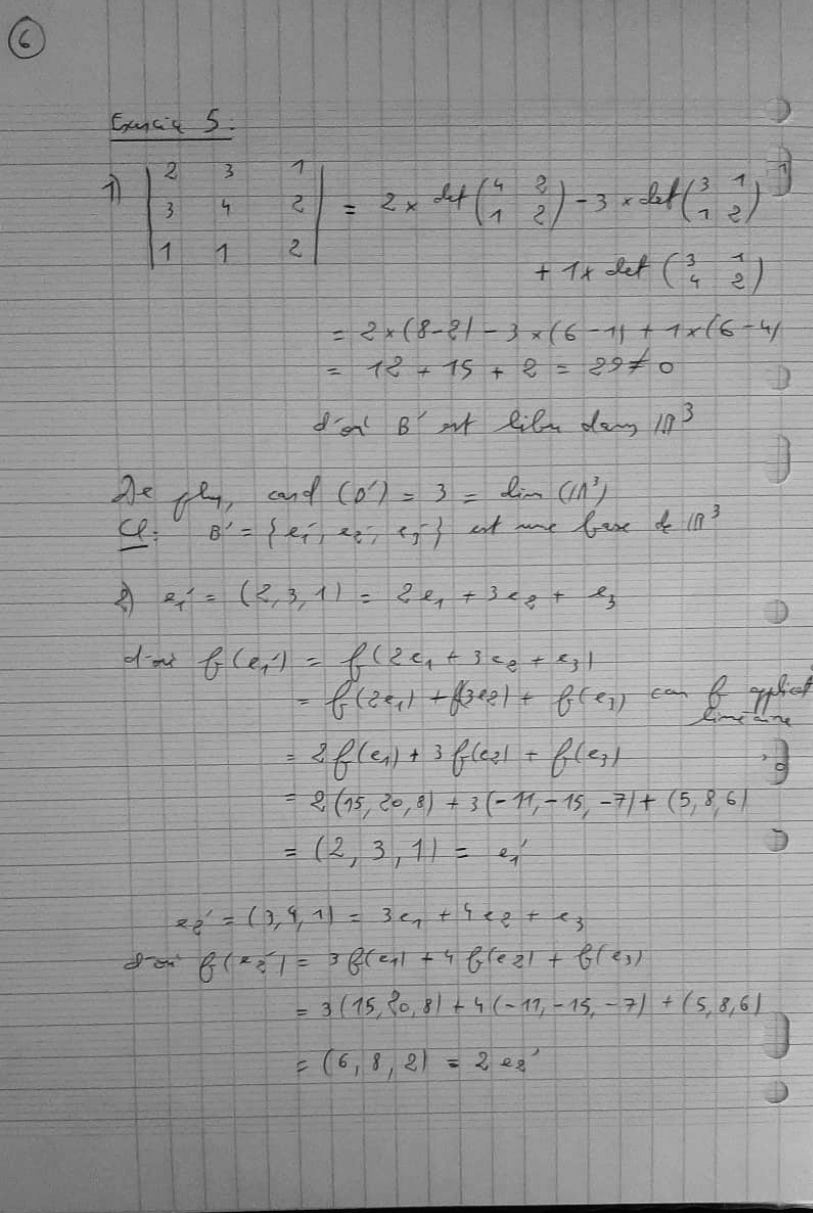 6
Exercice 5 :
1) | 2 3 1 |
| 3 4 2 | = 2 × det ( 4 2 ; 1 2 ) - 3 × det ( 3 1 ; 1 2 )
| 1 1 2 |
+ 1 × det ( 3 1 ; 4 2 )
= 2 × (8-2) - 3 × (6-1) + 1 × (6-4)
= 12 + 15 + 2 = 29 ≠ 0
d'où B' est libre dans ℝ³
De plus, card (B') = 3 = dim (ℝ³)
Cl : B' = {e₁', e₂', e₃'} est une base de ℝ³
2) e₁' = (2,3,1) = 2e₁ + 3e₂ + e₃
d'où f(e₁') = f(2e₁ + 3e₂ + e₃)
= f(2e₁) + f(3e₂) + f(e₃) car f applicat
linéaire
= 2f(e₁) + 3f(e₂) + f(e₃)
= 2(15, 20, 8) + 3(-11, -15, -7) + (5, 8, 6)
= (2, 3, 1) = e₁'
e₂' = (3,4,1) = 3e₁ + 4e₂ + e₃
d'où f(e₂') = 3f(e₁) + 4f(e₂) + f(e₃)
= 3(15, 20, 8) + 4(-11, -15, -7) + (5, 8, 6)
= (6, 8, 2) = 2e₂'